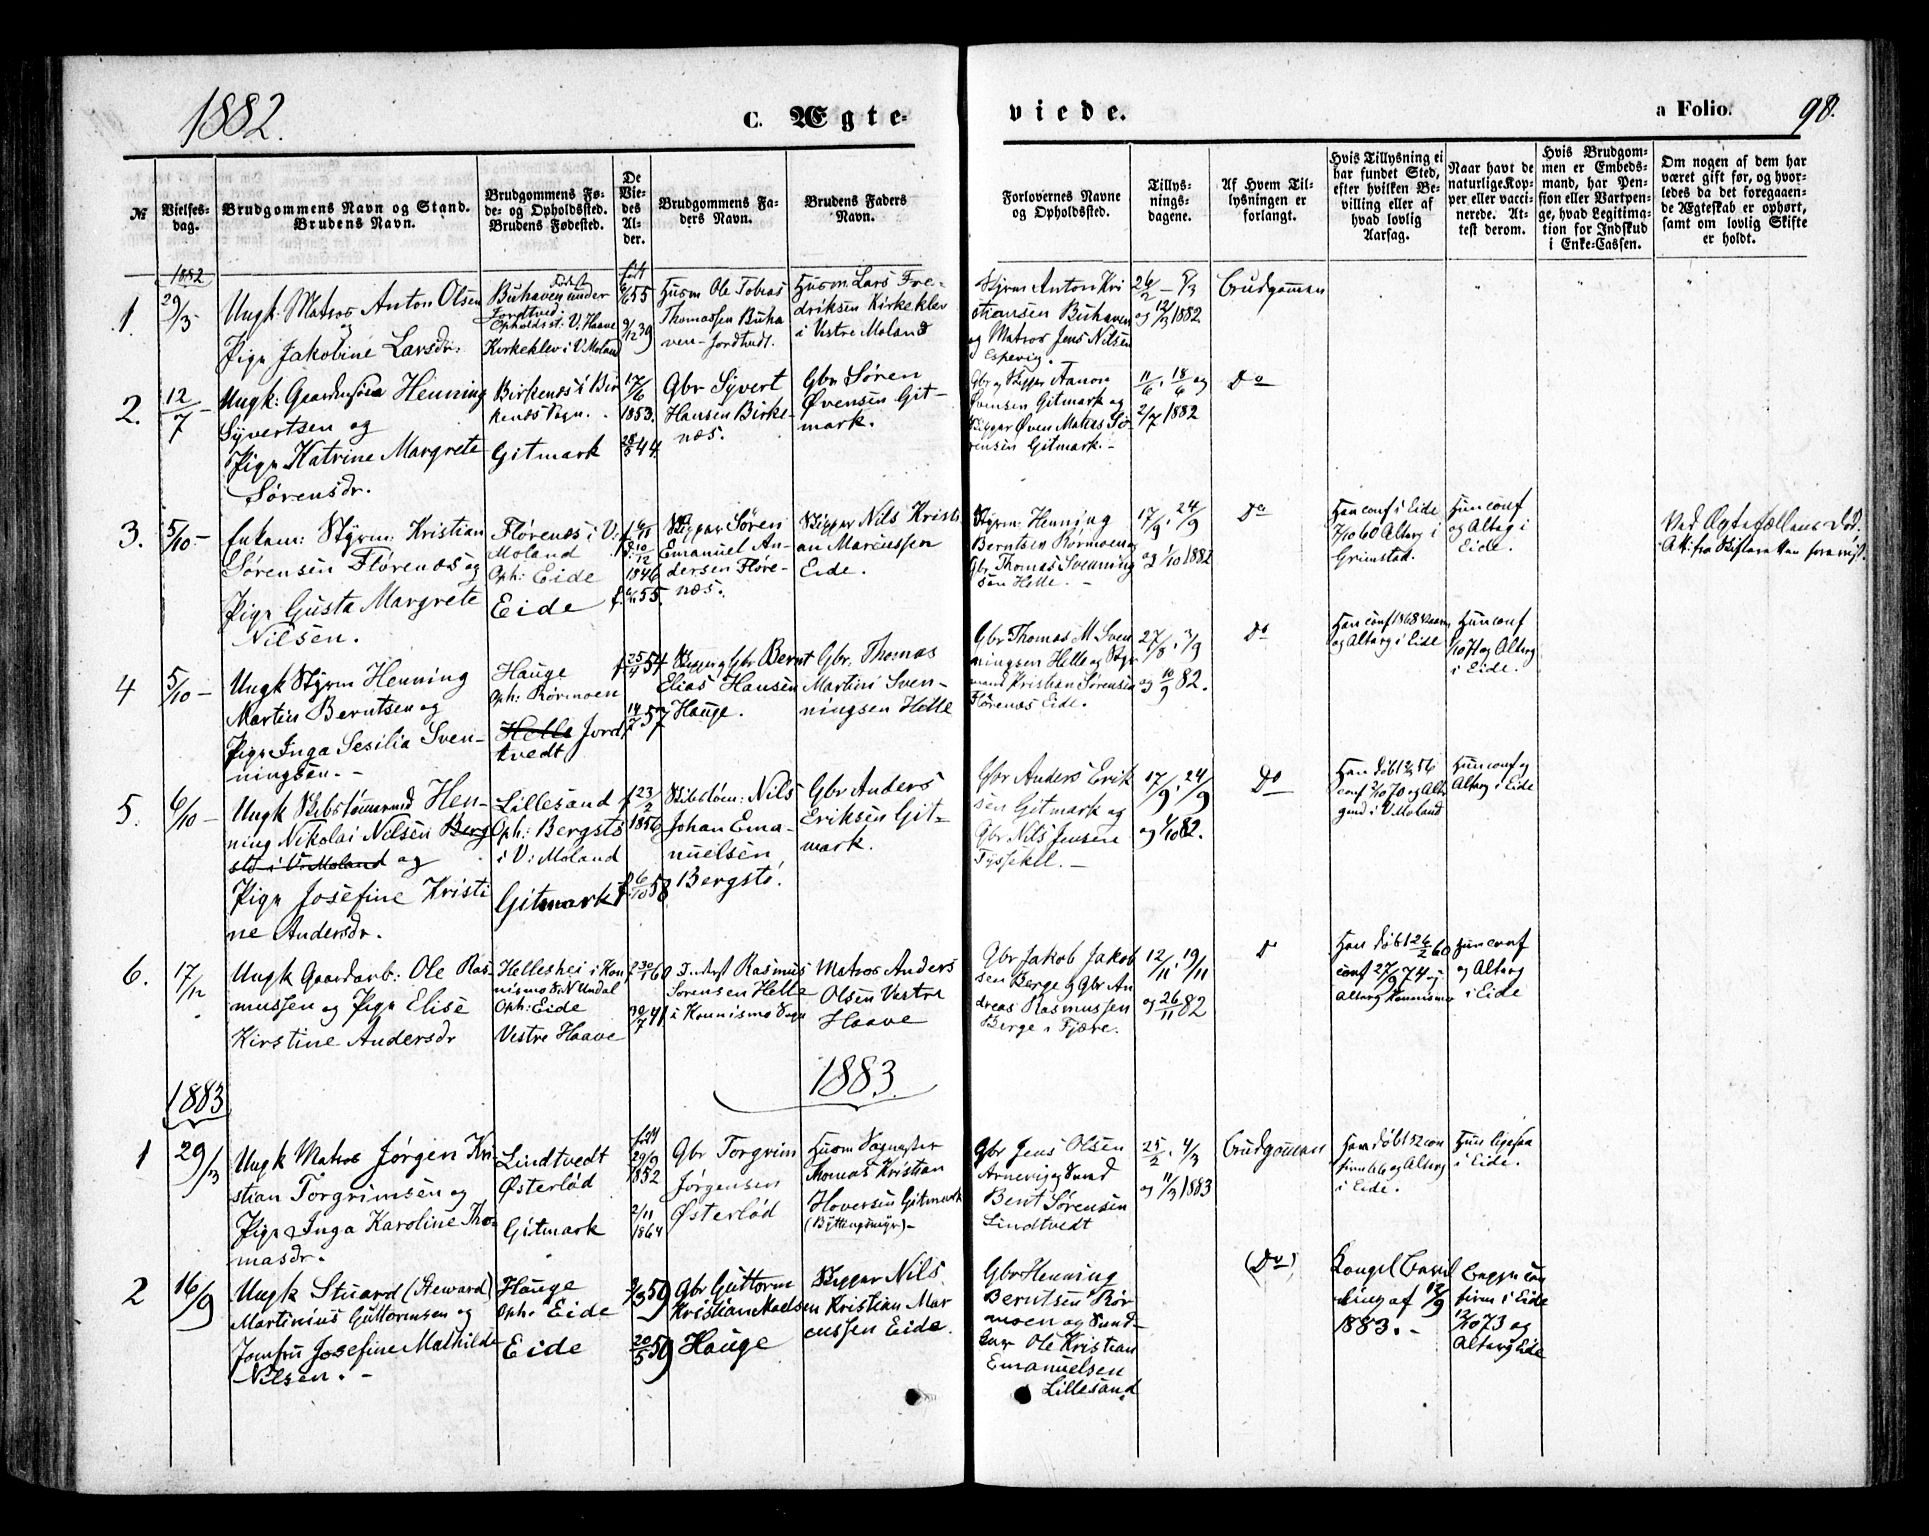 1882.
C. Ægte-
viede.
a Folio.
98.
№
Vielses-
dag.
Brudgommens Navn og Stand.
Brudens Navn.
Brudgommens Fø-
de- og Opholdssted.
Brudens Fødested.
De
Vie-
des
Al-
der.
Brudgommens Fa-
ders Navn.
Brudens Faders
Navn.
Forlovernes Navne
og Opholdssted.
Tillys-
nings-
dagene.
Af Hvem Til-
lysningen er
forlangt.
Hvis Tillysning ei
har fundet Sted,
efter hvilken Be-
villing eller af
hvad lovlig
Aarsag.
Naar havt de
naturlige Kop-
per eller vacci-
nerede. At-
test derom.
Hvis Brudgom-
men er Embeds-
mand, har Pen-
sion eller Vartpen-
ge, hvad Legitima-
tion for Indskud
i Enke-Cassen.
Om nogen af dem har
været gift før, og hvor-
ledes da det foregaaen-
de Ægteskab er ophørt,
samt om lovlig Skifte
er holdt.
1882
1.
29/3
Ungk: Matros Anton Olsen
og
Pige Jakobine Larsdr:
Født
Buhaven under
Jordtved
Opholdsst. V: Haave
Kirkeklev i V. Moland
født
6/6 55
9/12 39
Husm Ole Tobias
Thomassen Buha
ven - Jordtvedt.
Husm. Lars Fre-
driksen Kirkeklev
i Vestre Moland
Styrm Anton Kri
stiansen Buhaven
og Matros Jens Nilsen
i Espevig.
26/2 - 5/3
og 12/3 1882
Brudgommen
2.
12/7 -
Ungk: Gaardmands Henning
Syvertsen og
Pige Katrine Margrete
Sørensdr.
Birkenæs i Bir
kenæs Sogn.
Gitmark
17/6
1853.
28/8 44.
Gbr Syvert
Hansen Birke-
næs.
Gbr Søren
Øvensen Git-
mark.
Gbr og Skipper Aanon
Øvensen Gitmark og
Skipper Øven Matias Sø-
rensen Gitmark. -
11/6. 18/6 og
2/7 1882
Do
3.
5/10 -
Enkem: Styrm: Kristian
Sørensen Florenæs og
Pige Gusta Margrete
Nilsen.
Florenæs i V:
Moland
Oph: Eide
Eide
1846
55.
Skipper Søren
Emanuel An-
dersen Flore-
næs.
Skipper Nils Kristi
an Marcussen
Eide.
Styrm: Henning
Berntsen Rörmoen og
Gbr Thomas Svenning
sen Helle. -
17/9. 24/9
og 1/10 1882
Do
Han conf i Eide
7/10 60 Altarg i
Grimstad.
Hun conf
og Altarg i
Eide.
Ved Ægtefællens Død.
4
5/10 -
Ungk Styrm Henning
Martin Berntsen og
Pige Inga Sesilia Sven-
ningsen. -
Hauge
Oph: Rörmoen
Helle Jord
tvedt
f 25/4 54
14/7 57
Skipper og Gbr Bernt
Elias Hansen
Hauge.
Gbr. Thomas
Martin Sven-
ningsen Helle
Gbr Thomas M Sven
ningsen Helle og Styr
mand Kristian Sørensen
Florenæs Eide.
27/8. 3/9
og 10/9 82.
Do
Han conf 1868 Vaaren
og Altarg i Eide
Hun conf
/10 71 og Altarg
i Eide.
5.
6/10 -
Ungk Skibstømmermd Hen-
ning Nikolai Nilsen Berg
stø i V: Moland og
Pige Josefine Kristi
ne Andersdr.
Lillesand
Oph: Bergstø
i V: Moland
Gitmark
f 23/2
1856
f 6/10 58
Skibstøm: Nils
Johan Ema-
nuelsen
Bergstø.
Gbr Anders
Eriksen Git-
mark.
Gbr Anders Erik
sen Gitmark og
Gbr Nils Jensen
17/9. 24/9
og 1/10 82.
Do
Hun conf og
Altarg i Eide
6.
17/12
Ungk Gaardarb: Ole Ras-
mussen og Pige Elise
Kirstine Andersdr
Helleshei i Kon
nismo S: N Undal
Oph: Eide
Vestre Haave
30/1 60
30/7 41
Inderst Rasmus
Sørensen Helle
i Konnismo Sogn
Matros Anders
Olsen Vestre
Haave
Gbr Jakob Jakob
sen Berge og Gbr An
dreas Rasmussen
Berge i Fjære.
12/11. 19/11
og 26/11 82
Do
Han døbt 26/2 60
conf 27/9 74 og
Altarg Konnismo
Hun conf
og Altarg
i Eide
1883
1883.
1
29/3
Ungk Matros Jørgen Kri-
stian Torgrimsen og
Pige Inga Karoline Tho-
masdr.
Lindtvedt
Østerlød
Gitmark
født
29/9
1852
2/11
1864
Gbr Torgrim
Jørgensen
Østerlød
Husm Vognester
Thomas Kristian
Hoversen Gitmark
(Byttingsmyr) -
Gbr Jens Olsen
Arnevig og Svend
Bent Sørensen
Lindtvedt
25/2. 4/3
og 11/3 1883
Brudgommen
Han døbt 52 con
firm 66 og Altarg
i Eide.
Hun ligesaa
i Eide.
2
16/9
Ungk Stuard (Steward)
Martinius Guttormsen og
Jomfru Josefine Mathilde
Nilsen. -
Hauge
Oph: Eide
Eide
59
20/5 59
Gbr Guttorm
Kristian Noelsen
Hauge
Skipper Nils
Kristian Mar
cussen Eide.
Gbr Henning
Berntsen Rör
moen og Svend-
Ole Kristian
Emanuelsen
Lillesand
(Do)
Kongel Bevil
ling af 12/9
1883. -
Begge con
firm i Eide
12/10 73 og
Altarg Eide